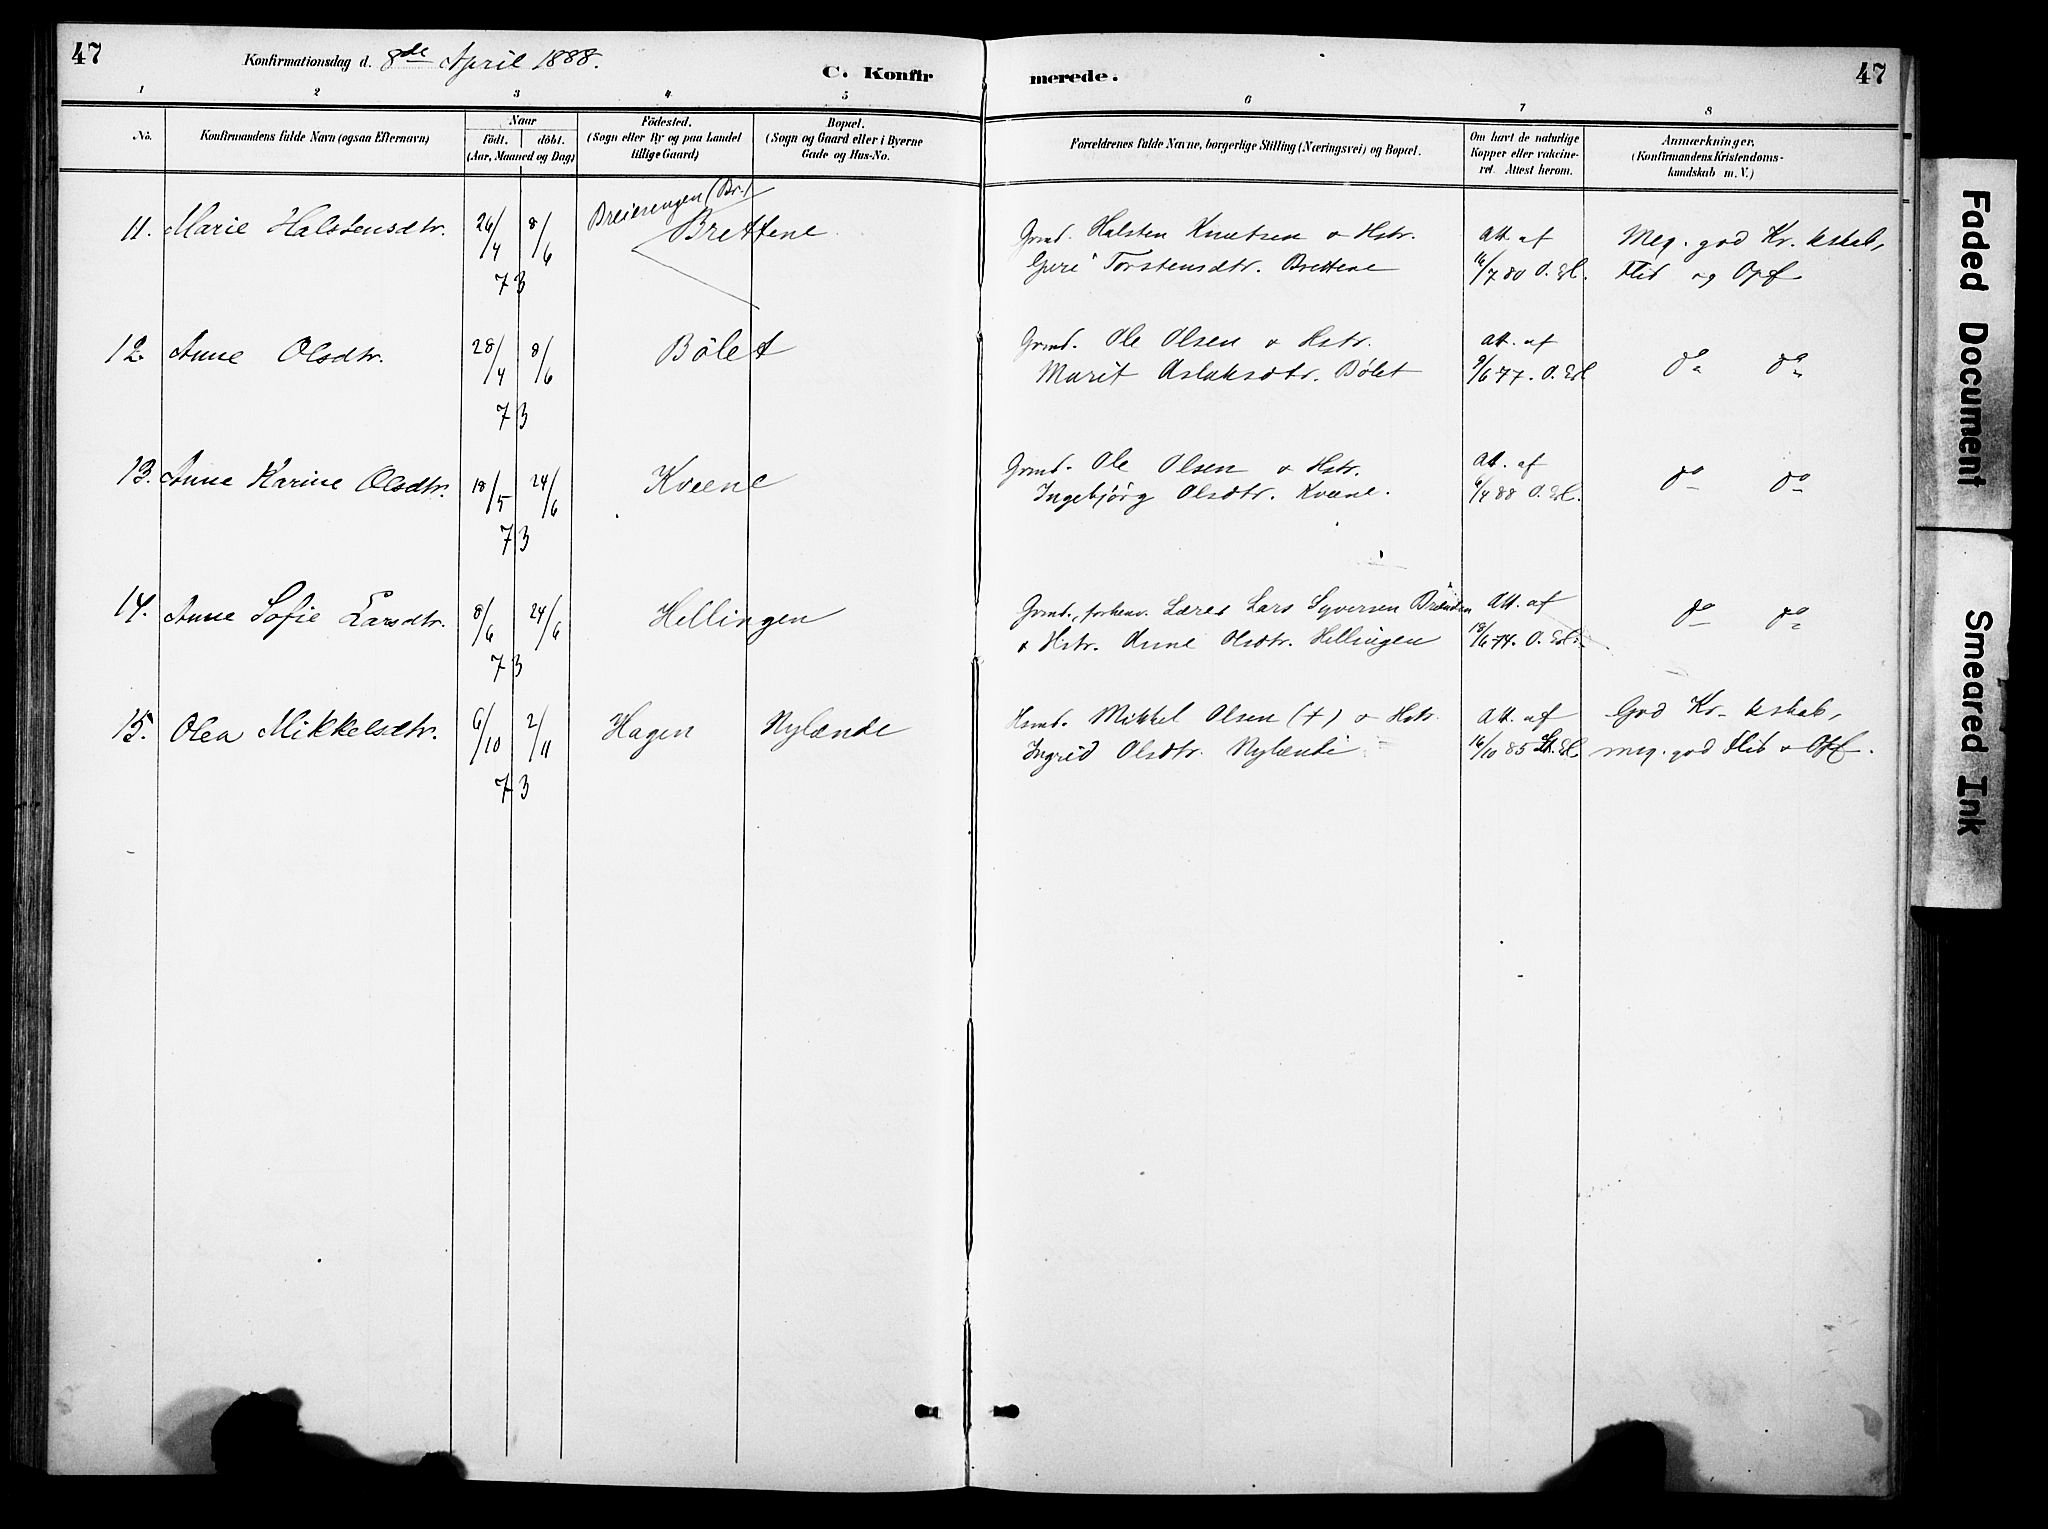 47
Konfirmationsdag d. 8de April 1888.
C. Konfir
merede.
47
1 2 3 4 5 6 7 8
No.
Konfirmandens fulde Navn (ogsaa Efternavn)
Naar
födt. döbt.
(Aar, Maaned og Dag)
Födested.
(Sogn eller By og paa Landet
tillige Gaard)
Bopæl.
(Sogn og Gaard eller i Byerne
Gade og Hus-No.
Forældrenes fulde Navne, borgerlige Stilling (Næringsvei) og Bopæl.
Om havt de naturlige
Kopper eller vakcine-
ret. Attest herom.
Anmærkninger,
(Konfirmandens Kristendoms-
kundskab m. V.)
Breiesengen (Br.)
11. Marie Halstensdtr. 26/4 8/6 Brettene Grmd. Halsten Knutsen & Hstr. Att. af Meg. god Kr. kskab,
73 Guri Torstensdtr. Brettene 16/7 80 O. El. Flid og Opf
12. Anne Olsdtr. 28/4 8/6 Bölet Grmd. Ole Olsen & Hstr. Att. af
73 Marit Aslaksdtr. Bölet 9/6 77. O. El do do
13. Anne Karine Olsdtr. 18/5 24/6 Kveene Grmd. Ole Olsen & Hstr. Att. af
73 Ingebjörg Olsdtr. Kveene. 6/4 88 O. El. do do
14. Anne Sofie Larsdtr. 8/6 24/6 Hellingen Grmd., forhenv. Lærer Lars Syversen Brænden Att. af
73 & Hstr. Anne Olsdtr. Hellingen 18/6 74. O. El. do do
15. Olea Mikkelsdtr. 6/10 2/11 Hagen Nylænde Hsmd. Mikkel Olsen (+) & Hstr. Att. af God Kr. kskab,
73 Ingrid Olsdtr. Nylænde 16/10 85 El. meg. god Flid & Opf.
Faded Document
Smeared Ink